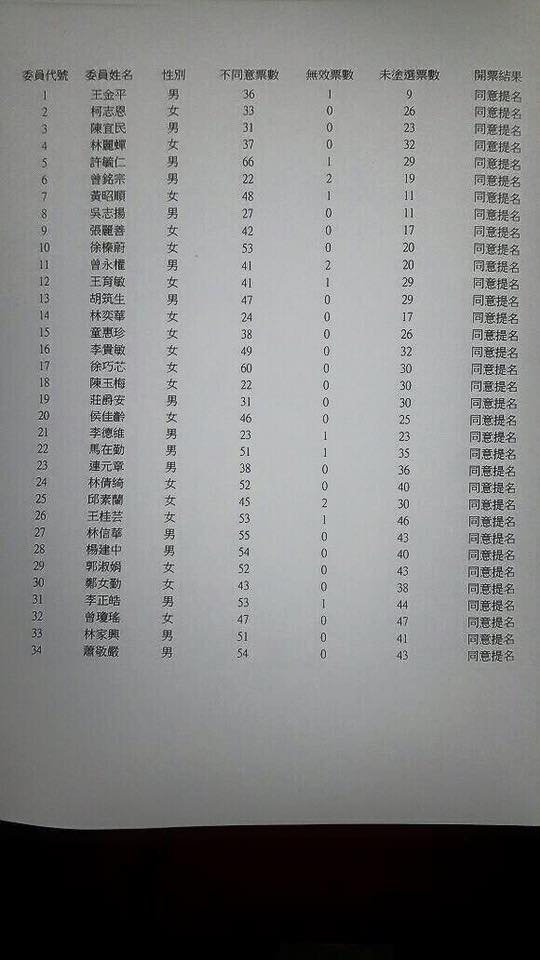 委員代號 委員姓名 性別 不同意票數 無效票數 未塗選票數 開票結果
1 王金平 男 36 1 9 同意提名
2 柯志恩 女 33 0 26 同意提名
3 陳宜民 男 31 0 23 同意提名
4 林麗蟬 女 37 0 32 同意提名
5 許毓仁 男 66 1 29 同意提名
6 曾銘宗 男 22 2 19 同意提名
7 黃昭順 女 48 1 11 同意提名
8 吳志揚 男 27 0 11 同意提名
9 張麗善 女 42 0 17 同意提名
10 徐榛蔚 女 53 0 20 同意提名
11 曾永權 男 41 2 20 同意提名
12 王育敏 女 41 1 29 同意提名
13 胡筑生 男 47 0 29 同意提名
14 林奕華 女 24 0 17 同意提名
15 童惠珍 女 38 0 26 同意提名
16 李貴敏 女 49 0 32 同意提名
17 徐巧芯 女 60 0 30 同意提名
18 陳玉梅 女 22 0 30 同意提名
19 莊爵安 男 31 0 30 同意提名
20 侯佳齡 女 46 0 25 同意提名
21 李德維 男 23 1 23 同意提名
22 馬在勤 男 51 1 35 同意提名
23 連元章 男 38 0 36 同意提名
24 林倩綺 女 52 0 40 同意提名
25 邱素蘭 女 45 2 30 同意提名
26 王桂芸 女 53 1 46 同意提名
27 林信華 男 55 0 43 同意提名
28 楊建中 男 54 0 40 同意提名
29 郭淑娟 女 52 0 43 同意提名
30 鄭女勤 女 43 0 38 同意提名
31 李正皓 男 53 1 44 同意提名
32 曾瓊瑤 女 47 0 47 同意提名
33 林家興 男 51 0 41 同意提名
34 蕭敬嚴 男 54 0 43 同意提名